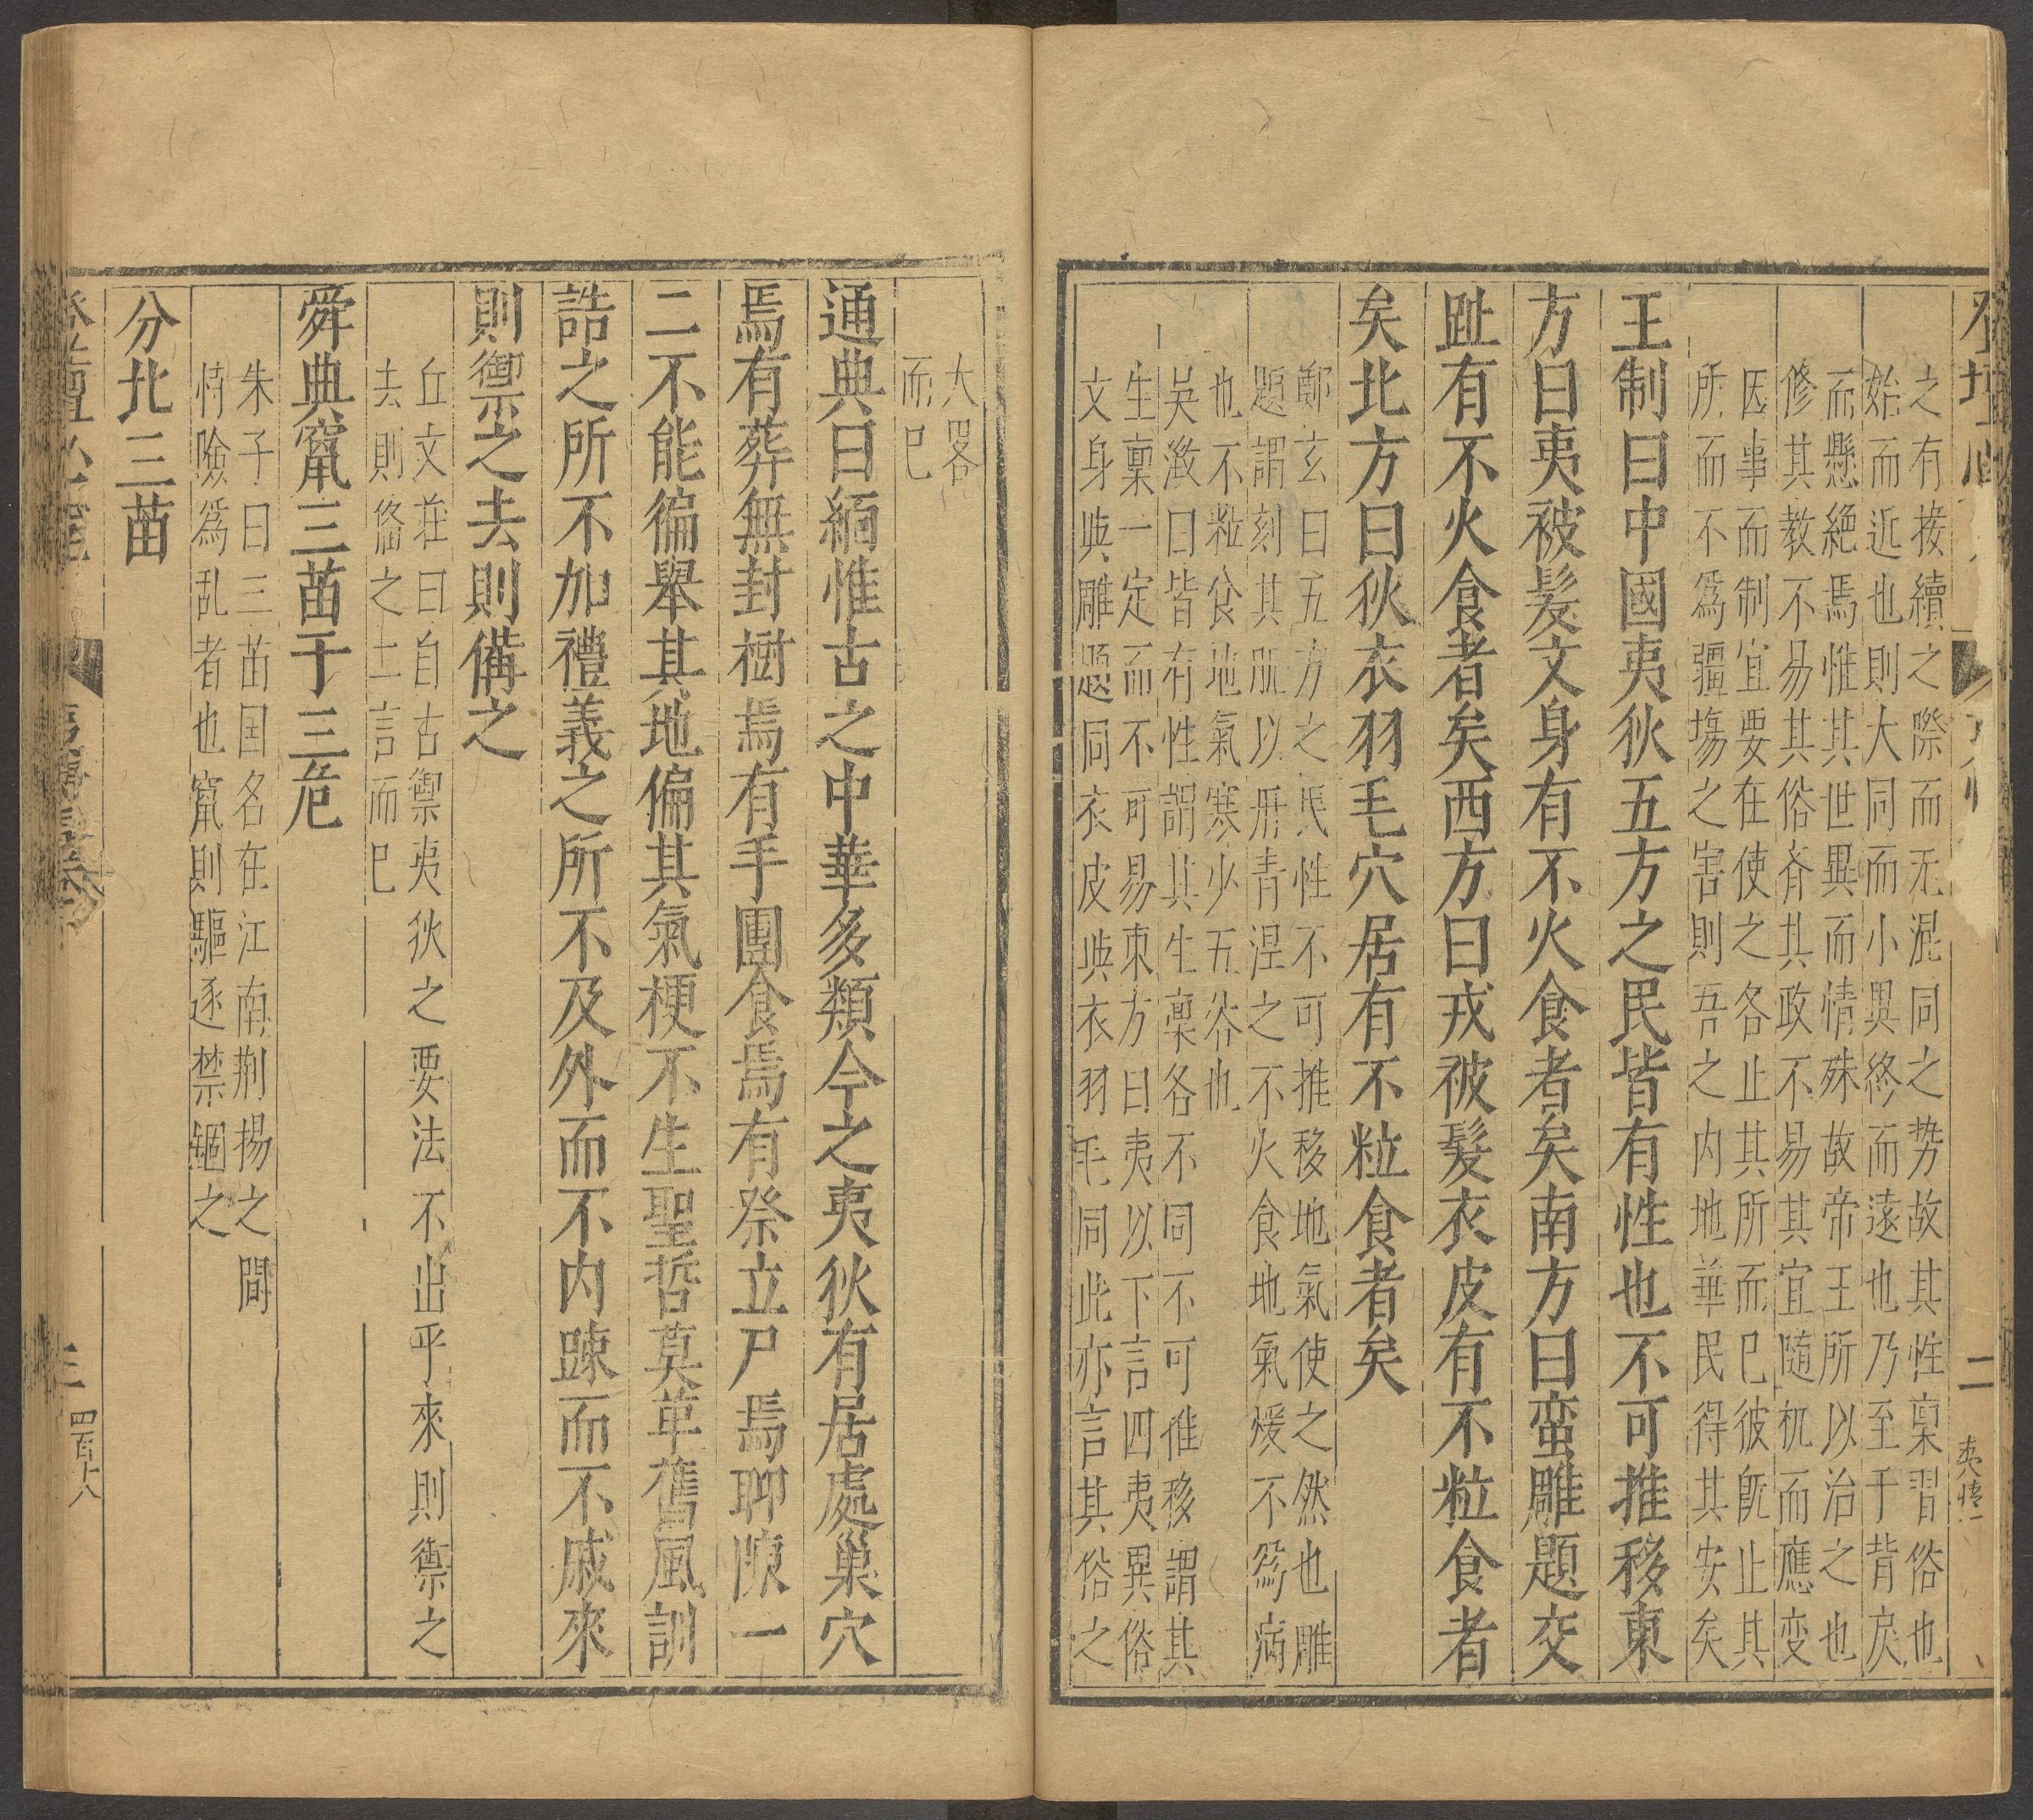 之有接續之際而无混同之势故其性稟習俗也
始而近也則大同而小異終而遠也乃至于背戾
而懸絶焉惟其世異而情殊故帝王所以治之也
修其教不易其俗斉其政不易其宜随机而應变
因事而制宜要在使之各止其所而已彼既止其
所而不爲疆塲之害則吾之内地華民得其安矣
王制曰中國夷狄五方之民皆有性也不可推移東
方曰夷被髮文身有不火食者矣南方曰蛮雕題交
趾有不火食者矣西方曰戎被髮衣皮有不粒食者
矣北方曰狄衣羽毛穴居有不粒食者矣
鄭玄曰五方之民性不可推移地氣使之然也雕
題謂刻其肌以丹青涅之不火食地氣煖不爲病
也不粒食地氣寒少五谷也
吴澂曰皆有性謂其生稟各不同不可推移謂其
生稟一定而不可易東方曰夷以下言四夷異俗
文身與雕題同衣皮與衣羽毛同此亦言其俗之
二
夷情一
大畧
而已
通典曰緬惟古之中華多類今之夷狄有居處巢穴
焉有葬無封樹焉有手團食焉有祭立尸焉聊陳一
二不能徧舉其地偏其氣梗不生聖哲莫革舊風訓
誥之所不加禮義之所不及外而不内踈而不戚來
則禦之去則備之
丘文莊曰自古禦夷狄之要法不出乎來則禦之
去則俻之二言而已
舜典竄三苗于三危
朱子曰三苗国名在江南荆揚之間
恃險爲乱者也竄則驅逐禁錮之
分北三苗
三
四百十八